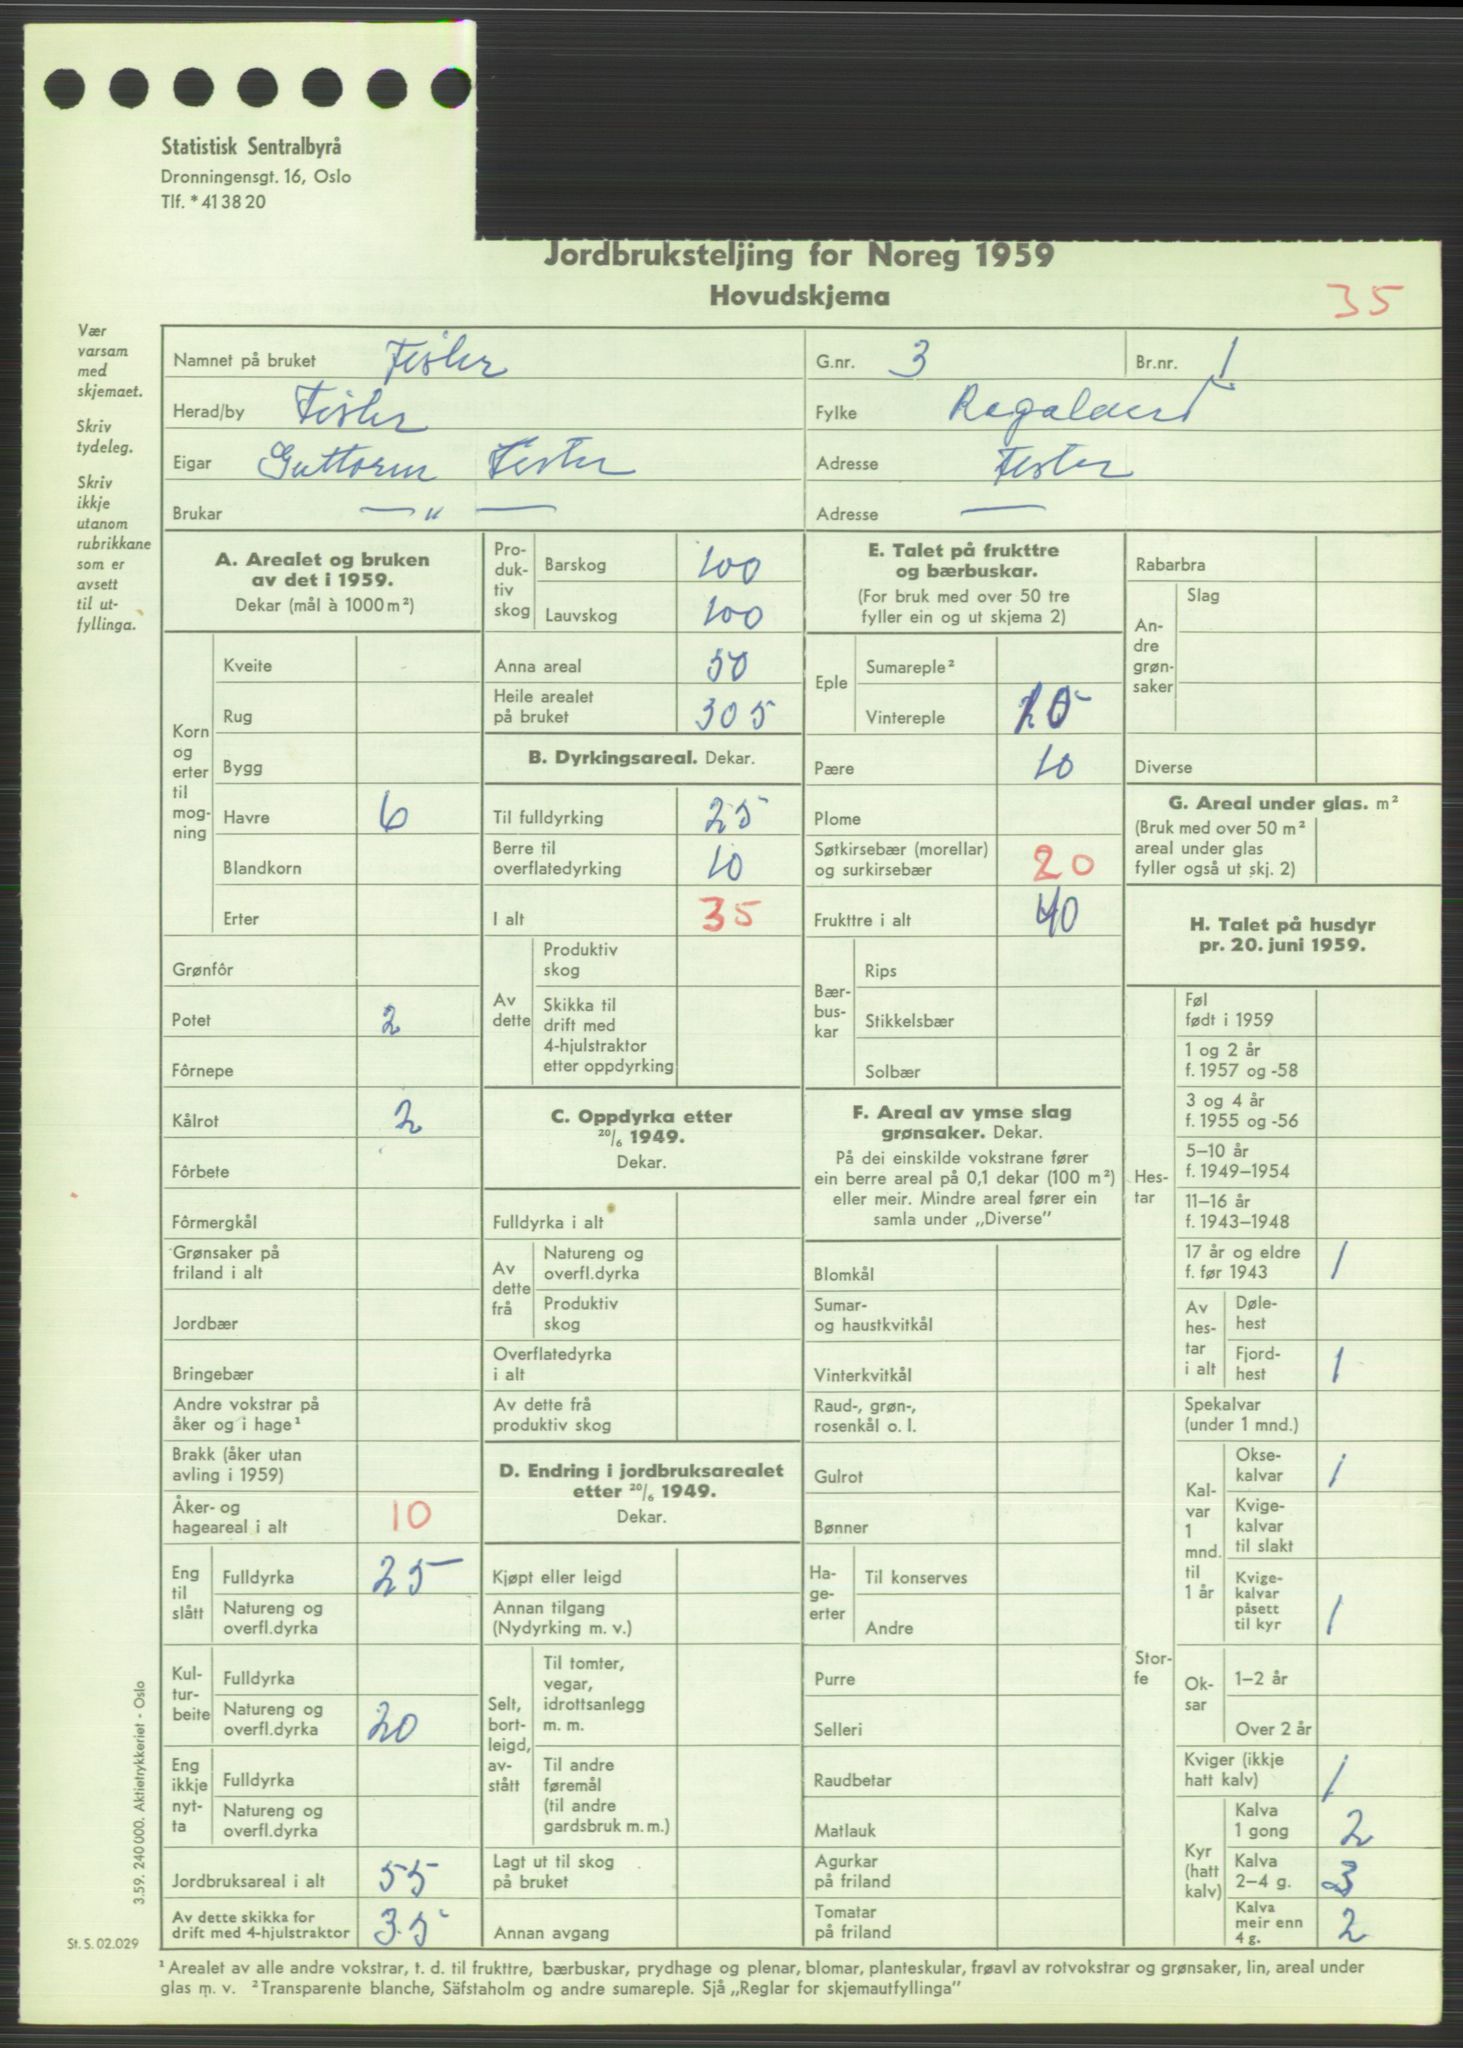 Statistisk Sentralbyrå
Dronningensgt. 16, Oslo
Tlf. * 41 38 20
Jordbruksteljing for Noreg 1959
Hovudskjema
35
Vær
varsam
med
skjemaet.
Skriv
tydeleg.
Skriv
ikkje
utanom
rubrikkane
som er
avsett
til ut-
fyllinga.
Namnet på bruket Fister G.nr. 3 Br.nr. 1
Herad/by Fister Fylke Rogaland
Eigar Guttorm Fister Adresse Fister
Brukar — " — Adresse —
A. Arealet og bruken
av det i 1959.
Dekar (mål à 1000 m²)
Korn
og
erter
til
mog-
ning
Kveite
Rug
Bygg
Havre 6
Blandkorn
Erter
Grønfôr
Potet 2
Fôrnepe
Kålrot 2
Fôrbete
Fôrmergkål
Grønsaker på
friland i alt
Jordbær
Bringebær
Andre vokstrar på
åker og i hage¹
Brakk (åker utan
avling i 1959)
Åker- og
hageareal i alt 10
Eng
til
slått
Fulldyrka 25
Natureng og
overfl.dyrka
Kul-
tur-
beite
Fulldyrka
Natureng og
overfl.dyrka 20
Eng
ikkje
nyt-
ta
Fulldyrka
Natureng og
overfl.dyrka
Jordbruksareal i alt 55
Av dette skikka for
drift med 4-hjulstraktor 35
Pro-
duk-
tiv
skog
Barskog 100
Lauvskog 100
Anna areal 50
Heile arealet
på bruket 305
B. Dyrkingsareal. Dekar.
Til fulldyrking 25
Berre til
overflatedyrking 10
I alt 35
Av
dette
Produktiv
skog
Skikka til
drift med
4-hjulstraktor
etter oppdyrking
C. Oppdyrka etter
20/6 1949.
Dekar.
Fulldyrka i alt
Av
dette
frå
Natureng og
overfl.dyrka
Produktiv
skog
Overflatedyrka
i alt
Av dette frå
produktiv skog
D. Endring i jordbruksarealet
etter 20/6 1949.
Dekar.
Kjøpt eller leigd
Annan tilgang
(Nydyrking m. v.)
Selt,
bort-
leigd,
av-
stått
Til tomter,
vegar,
idrottsanlegg
m. m.
Til andre
føremål
(til andre
gardsbruk m. m.)
Lagt ut til skog
på bruket
Annan avgang
E. Talet på frukttre
og bærbuskar.
(For bruk med over 50 tre
fyller ein og ut skjema 2)
Eple
Sumareple²
Vintereple
Pære 10
Plome
Søtkirsebær (morellar)
og surkirsebær 20
Frukttre i alt 40
Bær-
bus-
kar
Rips
Stikkelsbær
Solbær
F. Areal av ymse slag
grønsaker. Dekar.
På dei einskilde vokstrane fører
ein berre areal på 0,1 dekar (100 m²)
eller meir. Mindre areal fører ein
samla under „Diverse”
Blomkål
Sumar-
og haustkvitkål
Vinterkvitkål
Raud-, grøn-,
rosenkål o. l.
Gulrot
Bønner
Ha-
ge-
erter
Til konserves
Andre
Purre
Selleri
Raudbetar
Matlauk
Agurkar
på friland
Tomatar
på friland
Rabarbra
An-
dre
grøn-
saker
Slag
Diverse
G. Areal under glas. m²
(Bruk med over 50 m²
areal under glas
fyller også ut skj. 2)
H. Talet på husdyr
pr. 20. juni 1959.
Hes-
tar
Føl
født i 1959
1 og 2 år
f. 1957 og -58
3 og 4 år
f. 1955 og -56
5–10 år
f. 1949–1954
11–16 år
f. 1943–1948
17 år og eldre
f. før 1943 1
Av
hes-
tar
i alt
Døle-
hest
Fjord-
hest 1
Stor-
fe
Spekalvar
(under 1 mnd.)
Kal-
var
1
mnd.
til
1 år
Okse-
kalvar 1
Kvige-
kalvar
til slakt
Kvige-
kalvar
påsett
til kyr 1
Ok-
sar
1–2 år
Over 2 år
Kviger (ikkje
hatt kalv) 1
Kyr
(hatt
kalv)
Kalva
1 gong 2
Kalva
2–4 g. 3
Kalva
meir enn
4 g. 2
3.59. 240 000. Aktietrykkeriet - Oslo
St. S. 02.029
¹ Arealet av alle andre vokstrar, t. d. til frukttre, bærbuskar, prydhage og plenar, blomar, planteskular, frøavl av rotvokstrar og grønsaker, lin, areal under
glas m. v. ² Transparente blanche, Säfstaholm og andre sumareple. Sjå „Reglar for skjemautfyllinga”